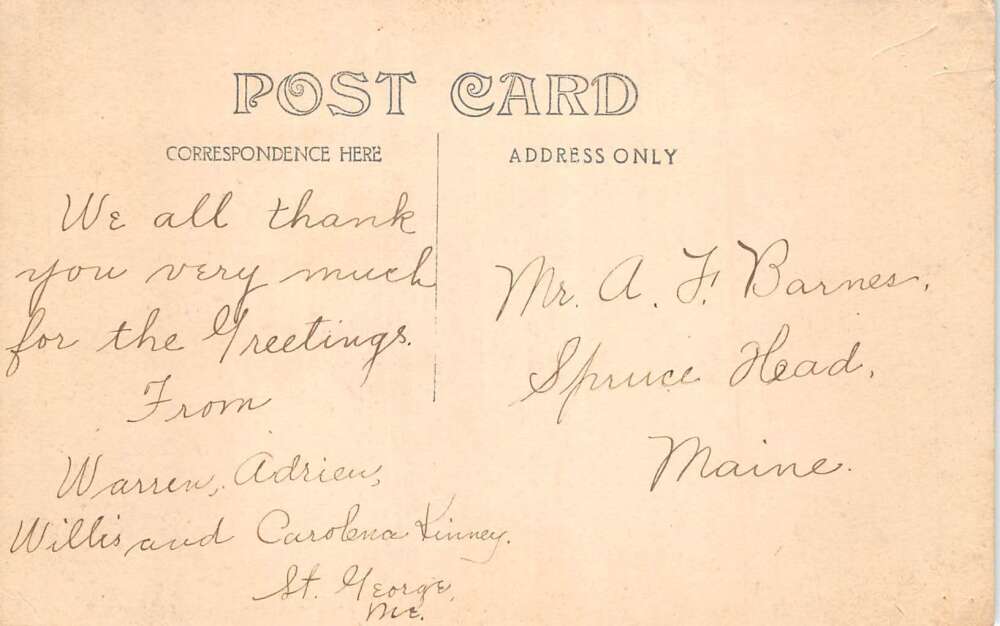 POST CARD
CORRESPONDENCE HERE
ADDRESS ONLY
We all thank
you very much
for the Greetings.
From
Warren, Adrien,
Willis and Carolena Kinney.
St. George,
Me.
Mr. A. F. Barnes,
Spruce Head,
Maine.